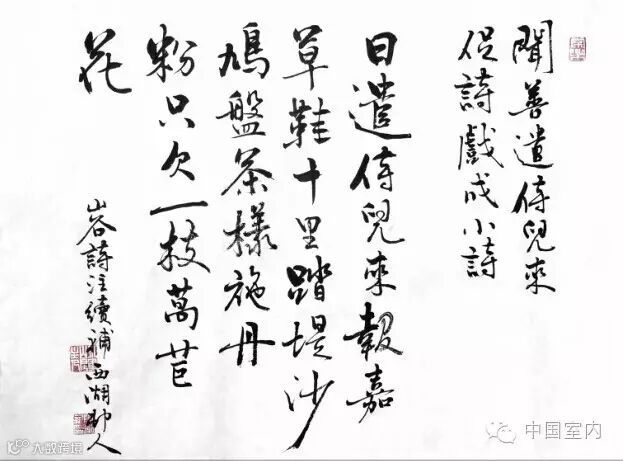 聞善遣侍兒來
促詩戲成小詩
日遣侍兒來報嘉
草鞋十里踏堤沙
鳩盤茶樣施丹
粉只欠一枝萵苣
花
山谷詩注續補 西湖邨人
中国室内
大数跨境